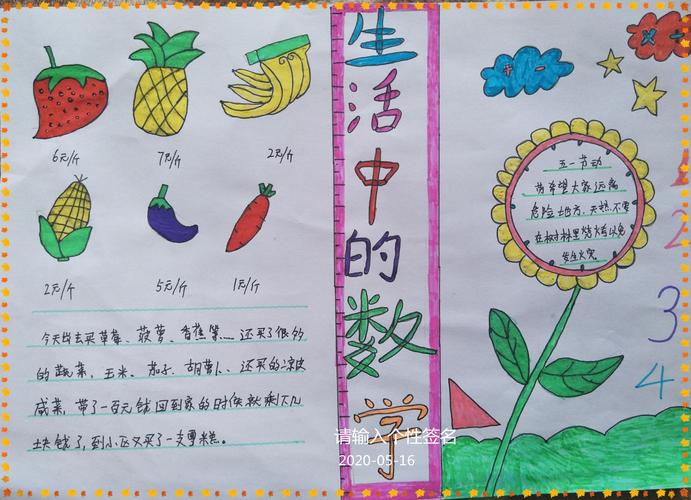 6元/斤
7元/斤
2元/斤
2元/斤
5元/斤
1元/斤
今天出去买草莓、菠萝、香蕉等……还买了很多
的蔬菜,玉米、茄子、胡萝卜、还买的凉皮
咸菜,带了一百元钱回到家的时候就剩下几
块钱了,到小区又买了一支雪糕。
生活中的数学
五一节
希望大家远离
危险地方,天热不要
在树林里烧烤以免
发生火灾
1
2
3
4
请输入个性签名
2020-05-16